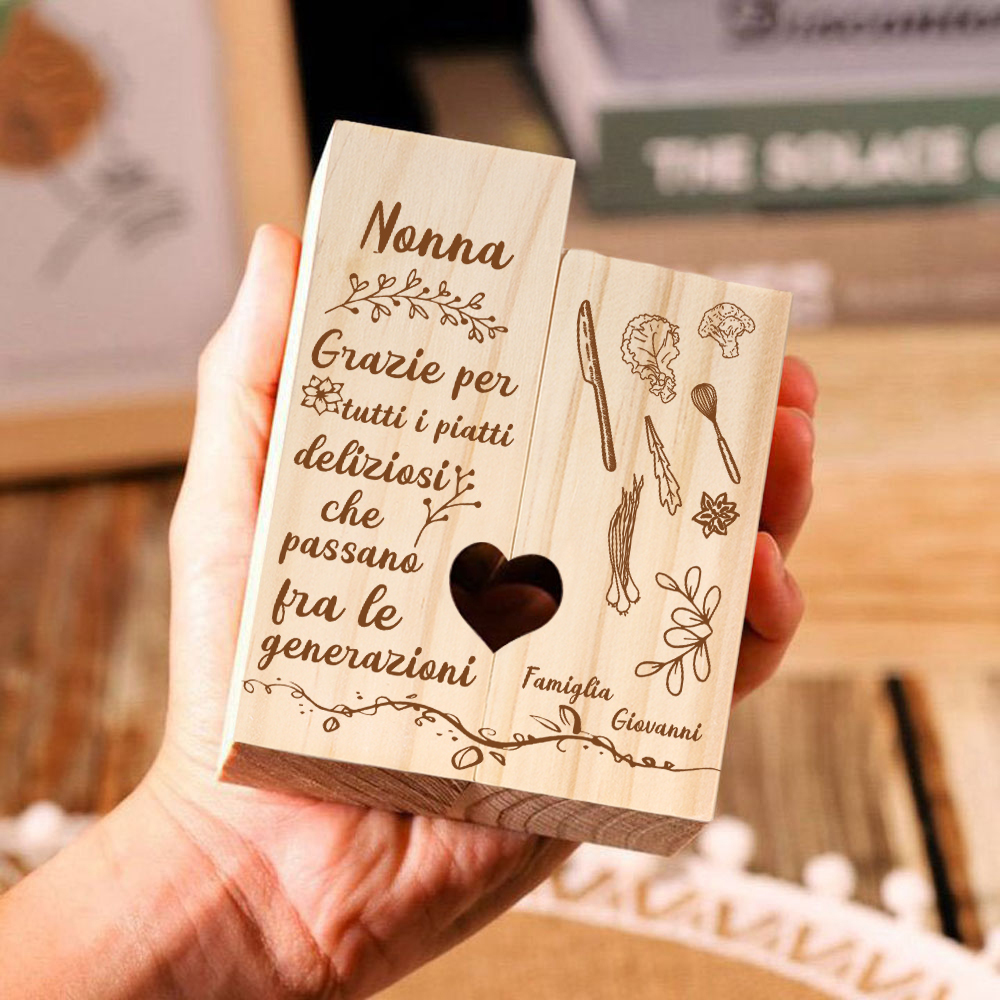 Nonna
Grazie per
tutti i piatti
deliziosi
che
passano
fra le
generazioni
Famiglia
Giovanni
THE SOLACE